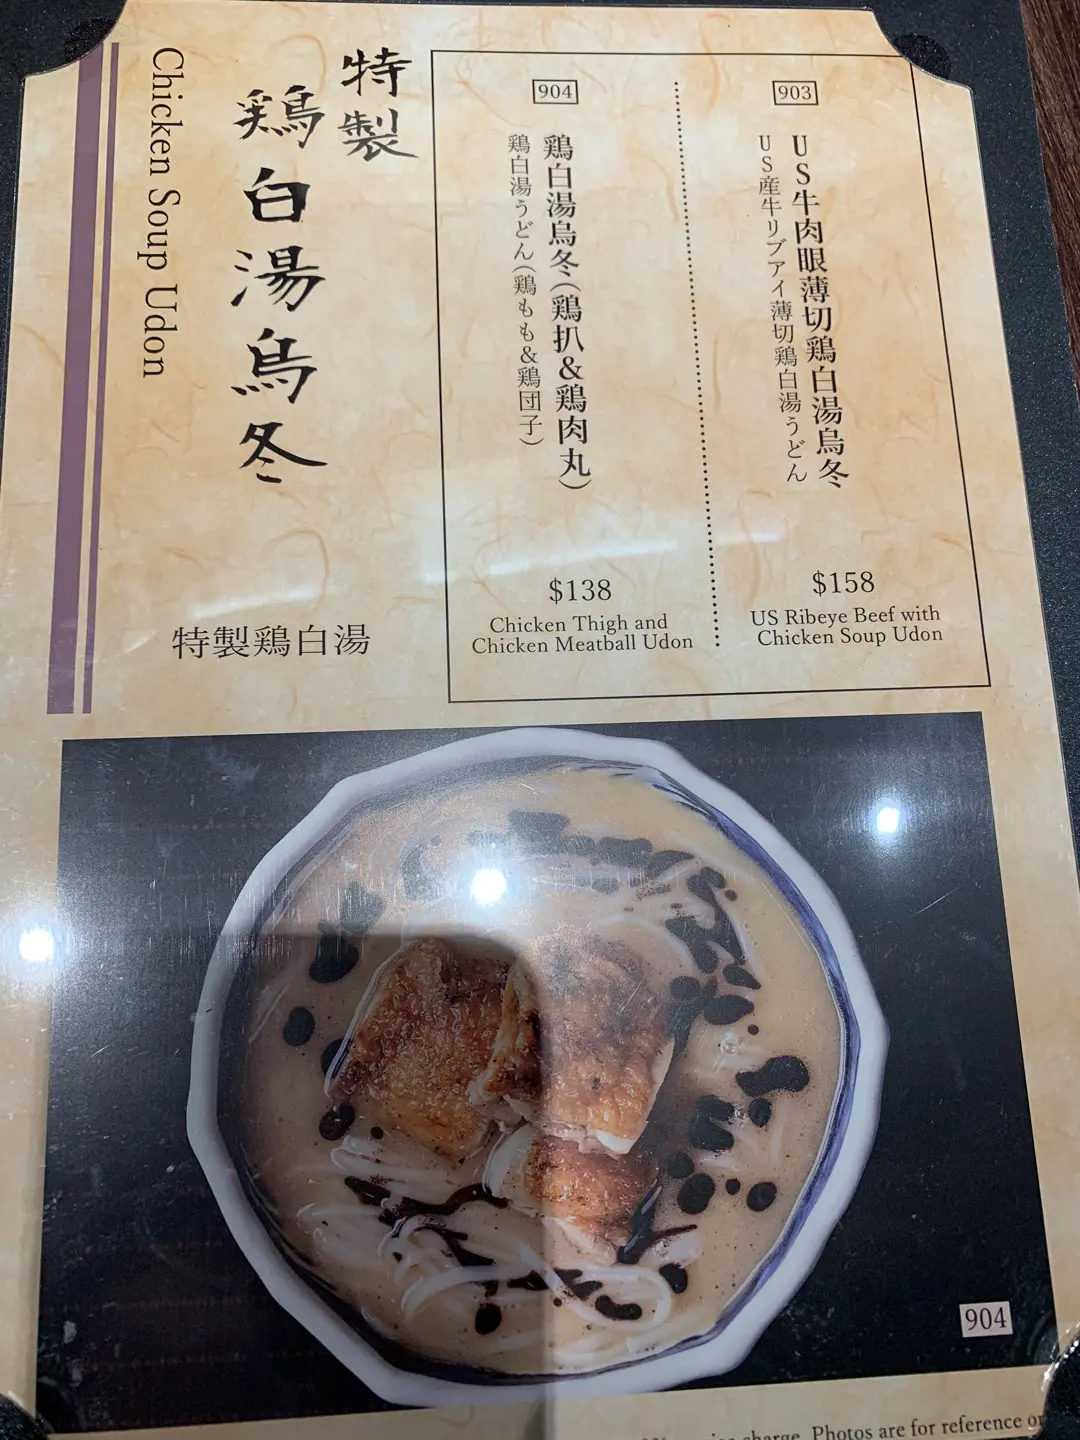 特製
鶏白湯烏冬
Chicken Soup Udon
特製鶏白湯
903
US牛肉眼薄切鶏白湯烏冬
US産牛リブアイ薄切鶏白湯うどん
$158
US Ribeye Beef with
Chicken Soup Udon
904
鶏白湯烏冬(鶏扒&鶏肉丸)
鶏白湯うどん(鶏もも&鶏団子)
$138
Chicken Thigh and
Chicken Meatball Udon
904
charge. Photos are for reference